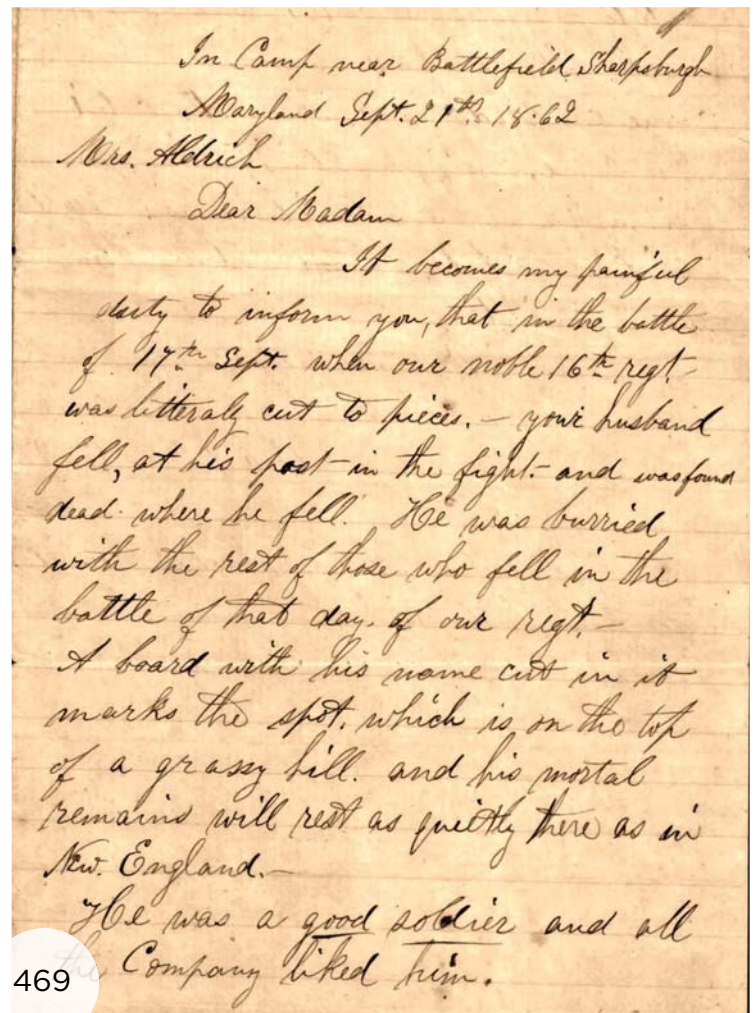 In Camp near Battlefield Sharpsburgh
Maryland Sept. 21th 18.62
Mrs. Aldrich
Dear Madam
It becomes my painful
duty to inform you, that in the battle
of 17th Sept. when our noble 16th regt.
was litteraly cut to pieces. – your husband
fell, at his post – in the fight. – and was found
dead. where he fell. He was burried
with the rest of those who fell in the
battle of that day. of our regt. –
A board with his name cut in it
marks the spot, which is on the top
of a grassy hill. and his mortal
remains will rest as quietly there as in
New. England. –
He was a good soldier and all
the Company liked him.
469